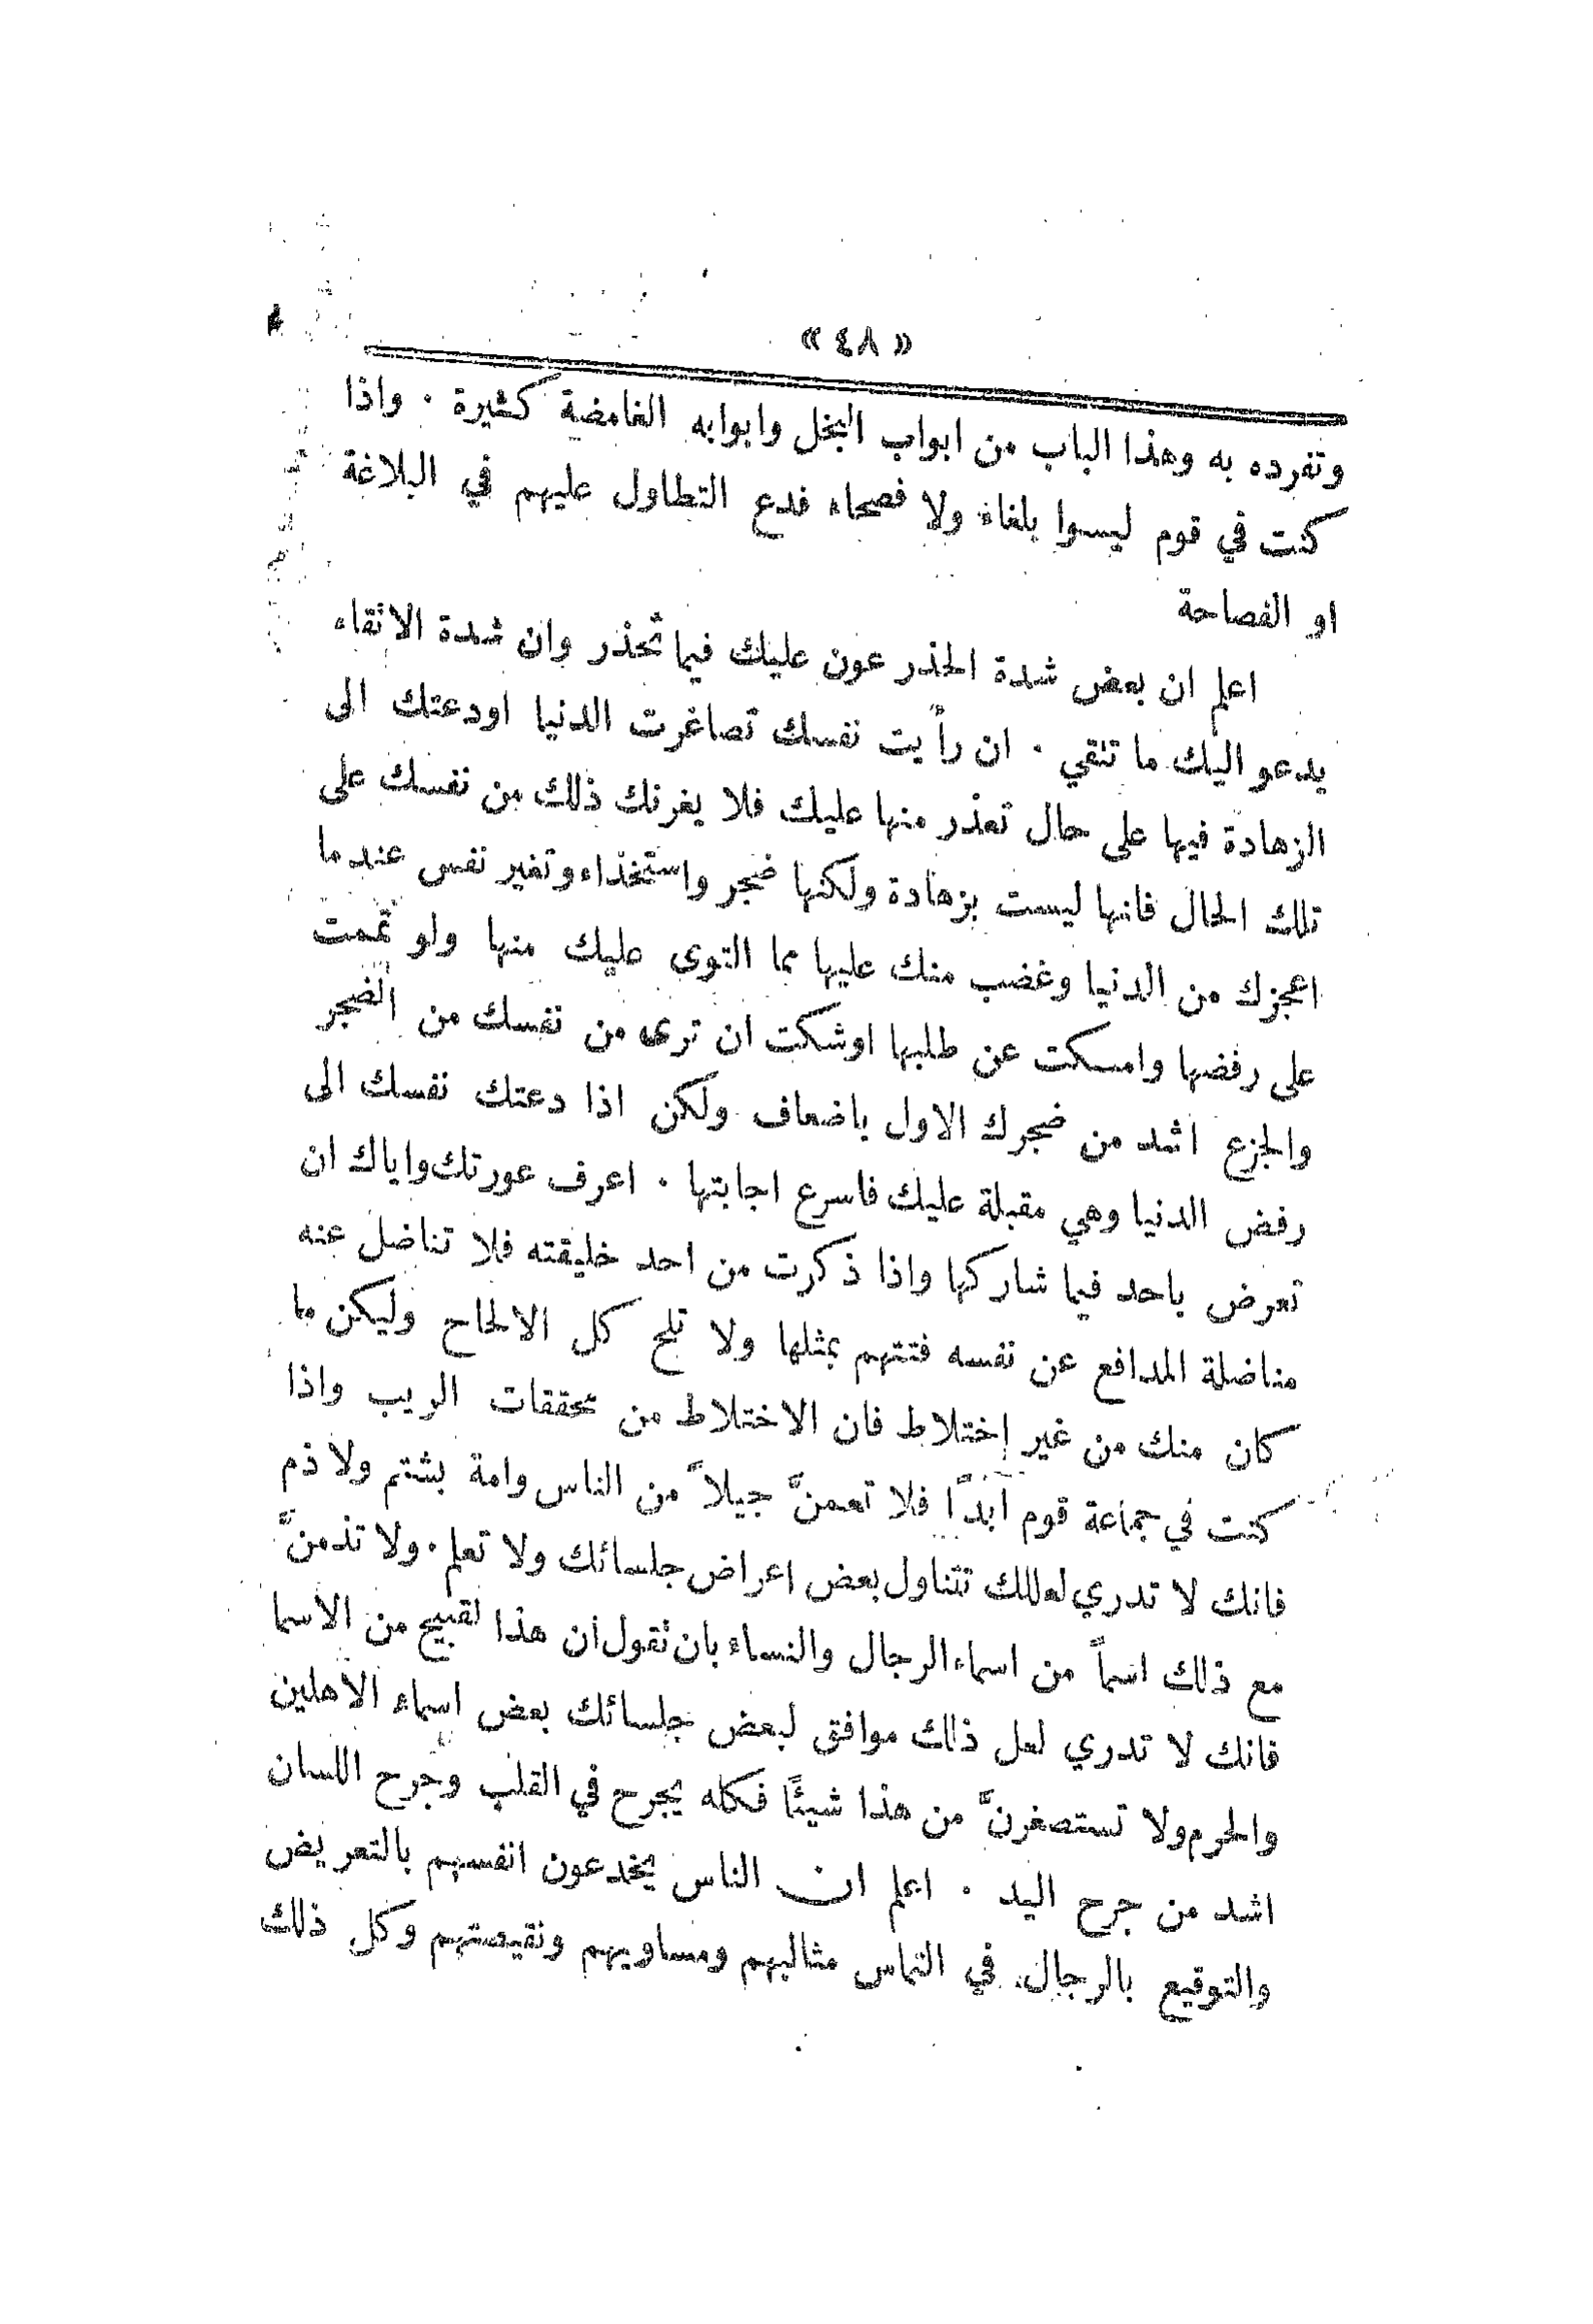 « ٤٨ »
وتفرده به وهذا الباب من ابواب البخل وابوابه الغامضة كثيرة ٠ واذا
كنت في قوم ليسوا بلغاء ولا فصحاء فدع التطاول عليهم في البلاغة
او الفصاحة
اعلم ان بعض شدة الحذر عون عليك فيما تحذر وان شدة الاتقاء
يدعو اليك ما نتقي ٠ ان رأيت نفسك تصاغرت الدنيا اودعتك الى
الزهادة فيها على حال تعذر منها عليك فلا يغرنك ذلك من نفسك على
تلك الحال فانها ليست بزهادة ولكنها ضجر واستخذاء وتغير نفس عند ما
اعجزك من الدنيا وغضب منك عليها مما التوى عليك منها ولو تممت
على رفضها وامسكت عن طلبها اوشكت ان ترى من نفسك من الضجر
والجزع اشد من ضجرك الاول باضعاف ولكن اذا دعتك نفسك الى
رفض الدنيا وهي مقبلة عليك فاسرع اجابتها ٠ اعرف عورتك واياك ان
تعرض باحد فيما شاركها واذا ذكرت من احد خليقته فلا تناضل عنه
مناضلة المدافع عن نفسه فتتهم بمثلها ولا تلح كل الالحاح وليكن ما
كان منك من غير إختلاط فان الاختلاط من محققات الريب واذا
كنت في جماعة قوم ابدًا فلا تعمنَّ جيلاً من الناس وامة بشتم ولا ذم
فانك لا تدري لعللك نتناول بعض اعراض جلسائك ولا تعلم ٠ ولا تذمنَّ
مع ذلك اسماً من اسماء الرجال والنساء بان نقول ان هذا لقبيح من الاسما
فانك لا تدري لعل ذلك موافق لبعض جلسائك بعض اسماء الاهلين
والحرم ولا تستصغرنَّ من هذا شيئًا فكله يجرح في القلب وجرح اللسان
اشد من جرح اليد ٠ اعلم ان الناس يخدعون انفسهم بالتعريض
والتوقيع بالرجال في التماس مثالبهم ومساويهم ونقيصتهم وكل ذلك